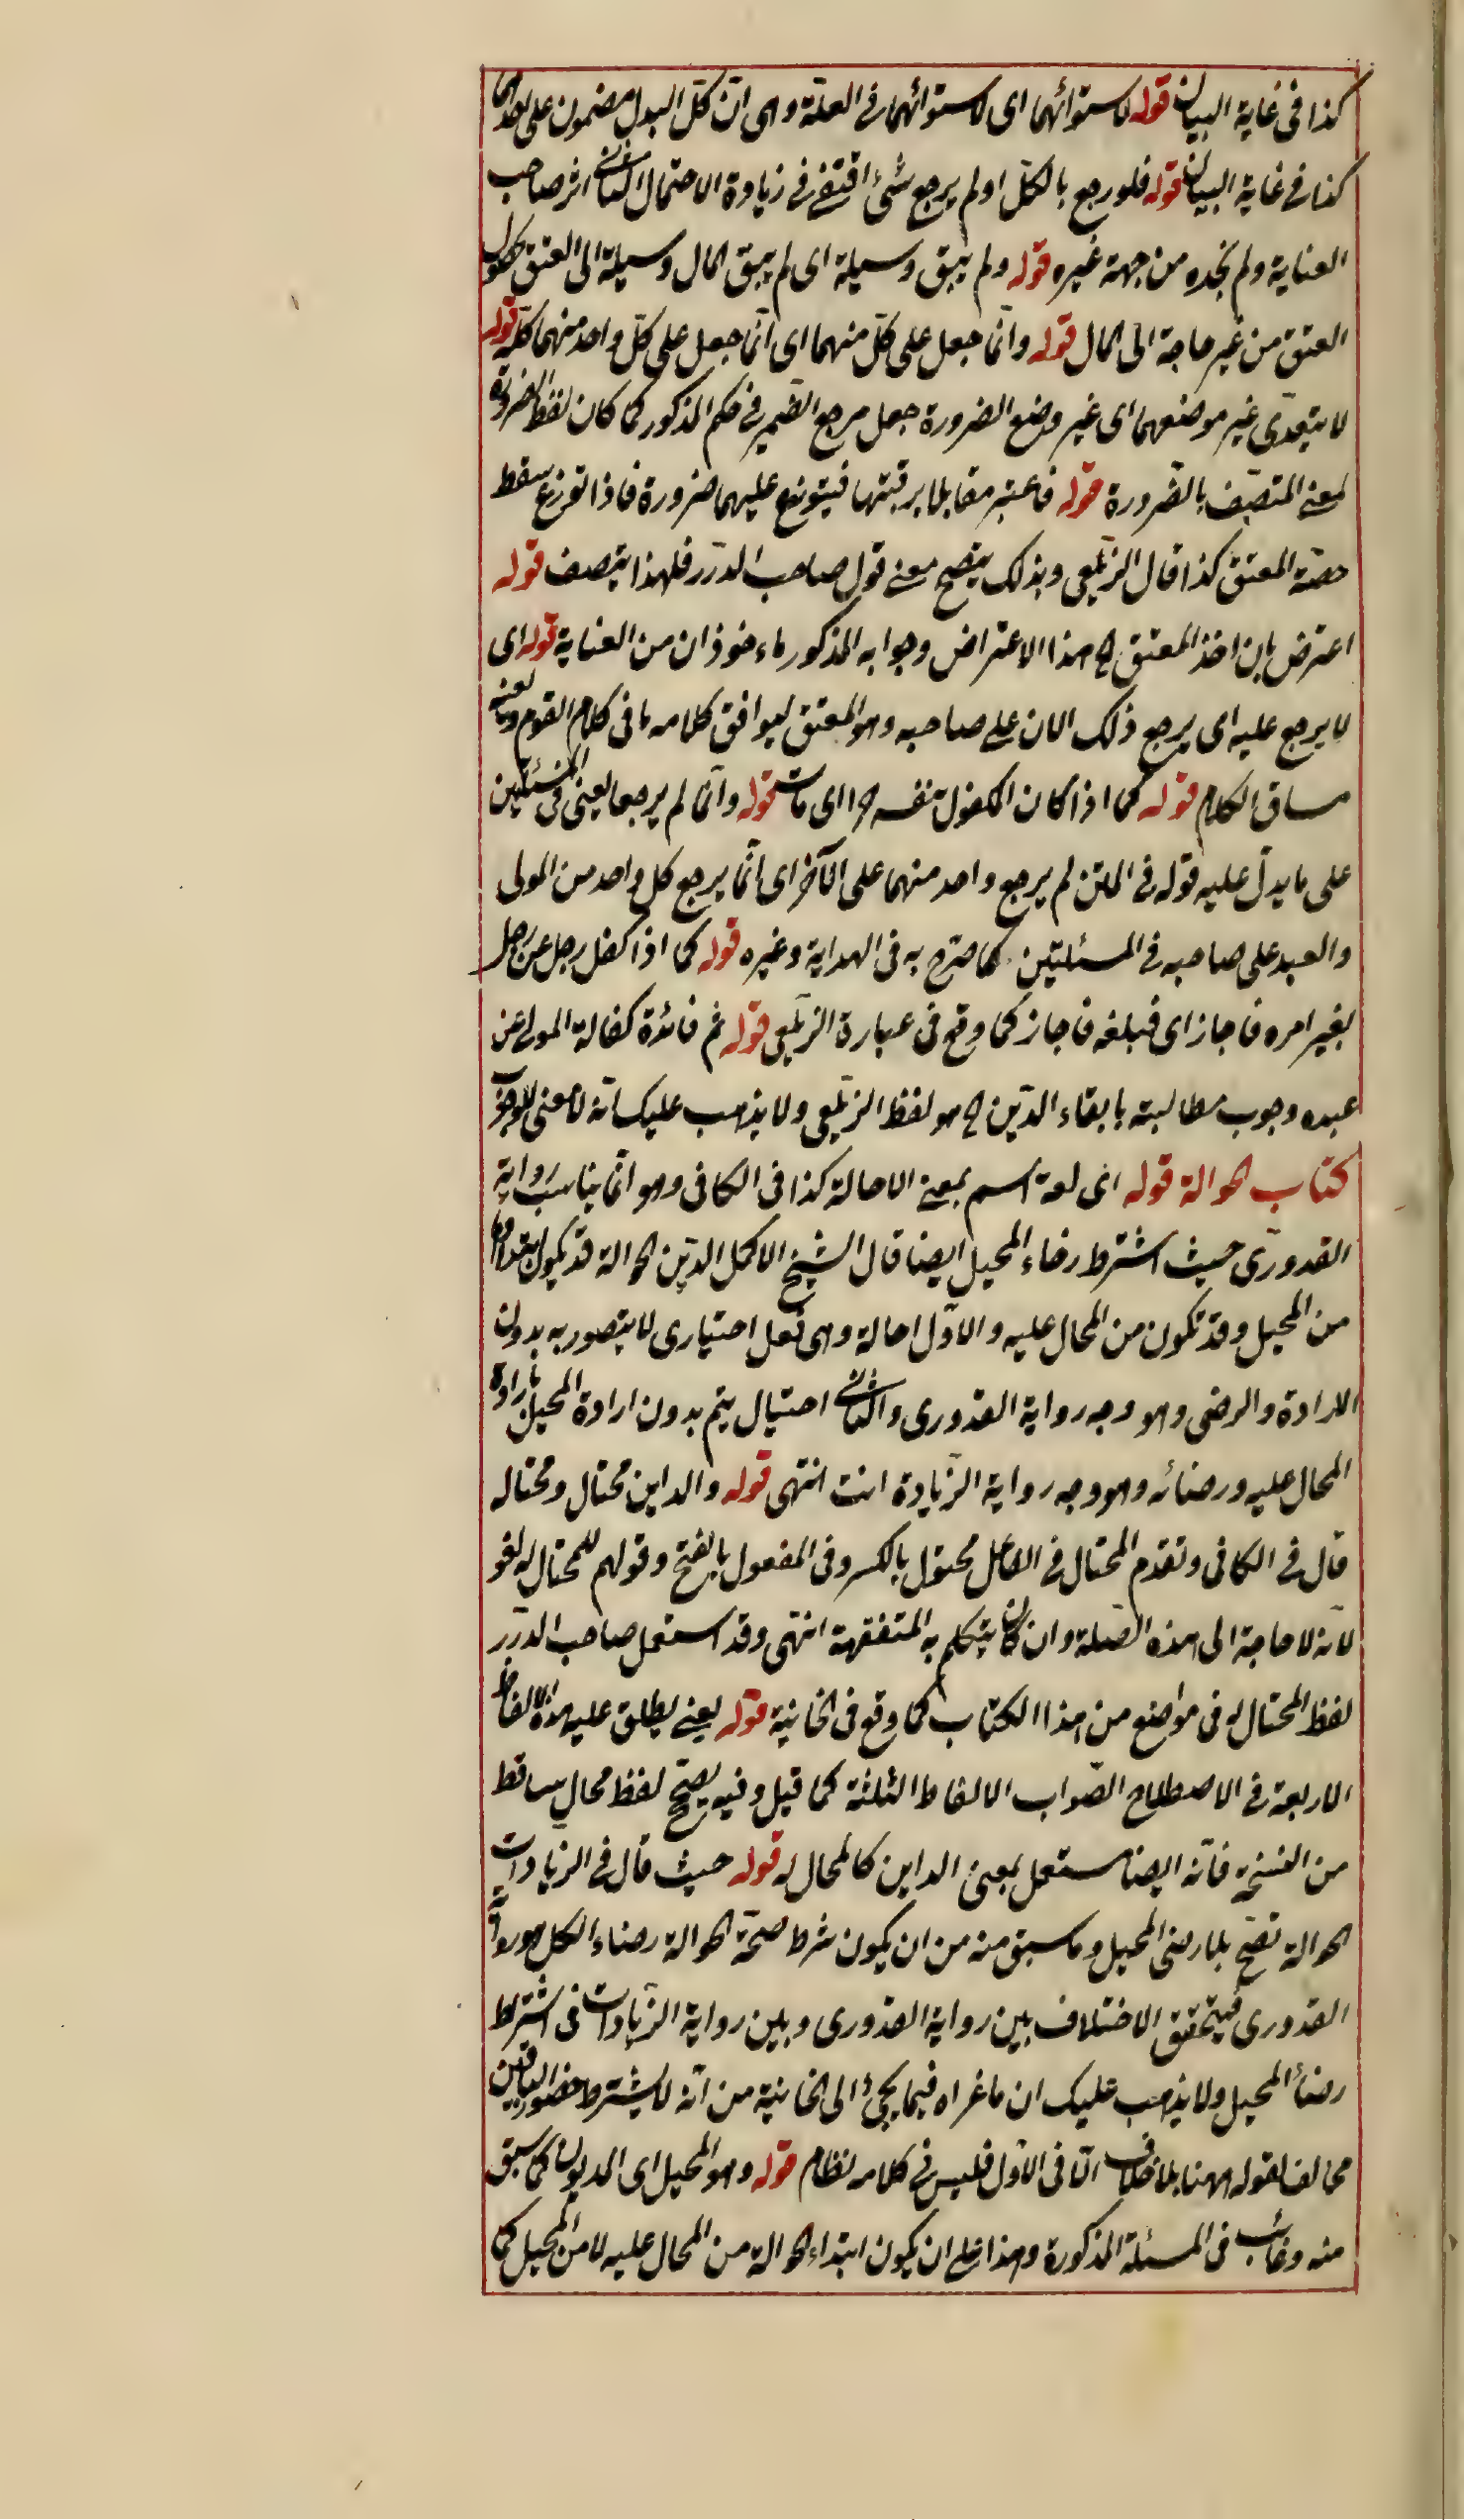 كذا فى غاية البيان قوله لاستوائهما اى لاستوائهما فى العلة وهى ان كل البدل مضمون على احدهما
كذا فى غاية البيان قوله فلو رجع بالكل او لم يرجع شئ اقتفى فى زيادة الاحتمال الثانى اثر صاحب
العناية ولم نجده من جهة غيره قوله ولم يبق وسيلة اى لم يبق المال وسيلة الى العتق لحصول
العتق من غير حاجة الى المال قوله وانما جعل على كل منهما اى انما جعل على كل واحد منهما كله قوله
لا يتعدى غير موضعهما اى غير وضع الضرورة جعل مرجع الضمير فى حكم المذكور كما كان لفظ الضرورة
لمعنى المتصف بالضرورة قوله فاعتبر مقابلا برقبتها فيتوزع عليهما ضرورة فاذا توزع سقط
حصة المعتق كذا قال الزيلعى وبذلك يتضح معنى قول صاحب الدرر فلهذا يتصف قوله
اعترض بان اخذ المعتق الخ هذا الاعتراض وجوابه المذكور ماءخوذان من العناية قوله اى
لا يرجع عليه اى يرجع ذلك الان على صاحبه وهو المعتق ليوافق كلامه ما فى كلام القوم
مساق الكلام قوله كما اذا كان المكفول نفسه حرا اى مات قوله وانما لم يرجعا يعنى فى المسئلتين
على ما يدل عليه قوله فى المتن لم يرجع واحد منهما على الآخر اى انما يرجع كل واحد من المولى
والعبد على صاحبه فى المسئلتين كما صرح به فى الهداية وغيره قوله كما اذا كفل رجل عن رجل
بغير امره فاجاز اى فبلغه فاجاز كما وقع فى عبارة الزيلعى قوله ثم فائدة كفالة المولى عن
عبده وجوب مطالبته بايفاء الدين الخ هو لفظ الزيلعى ولا يذهب عليك انه لا معنى للوجوب
كتاب الحوالة قوله اى لغة اسم بمعنى الاحالة كذا فى الكافى وهو انما يناسب رواية
القدورى حيث اشترط رضاء المحيل ايضا قال الشيخ الاكمل الدين الحوالة قد يكون ابتداؤها
من المحيل وقد تكون من المحال عليه والاول احالة وهى فعل اختيارى لا يتصور به بدون
الارادة والرضى وهو وجه رواية القدورى والثانى احتيال يتم بدون ارادة المحيل بارادة
المحال عليه ورضائه وهو وجه رواية الزيادة انت انتهى قوله والداين محتال ومحتاله
قال فى الكافى وتقدم المحتال فى الفاعل محتول بالكسر وفى المفعول بالفتح وقولهم للمحتال له لغو
لانه لا حاجة الى هذه الصلة وان كان يتكلم به المتفقهة انتهى وقد استعمل صاحب الدرر
لفظ المحتال له فى مواضع من هذا الكتاب كما وقع فى الخانية قوله يعنى يطلق عليه هذه الالفاظ
الاربعة فى الاصطلاح الصواب الالفاظ الثلثة كما قيل وفيه يصح لفظ محال ساقط
من النسخة فانه ايضا مستعمل بمعنى الداين كالمحال له قوله حيث قال فى الزيادات
الحوالة تصح بلا رضى المحيل وما سبق منه من ان يكون شرط صحة الحوالة رضاء الكل هو رواية
القدورى فيتحقق الاختلاف بين رواية القدورى وبين رواية الزيادات فى اشتراط
رضاء المحيل ولا يذهب عليك ان ما عزاه فيما يجئ الى الخانية من انه لا يشترط حضور الباقين
مخالف لقوله ههنا بلا خلاف اما فى الاول فليس فى كلامه نظام قوله وهو المحيل اى المديون كما سبق
منه وغائب فى المسئلة المذكورة وهذا على ان يكون ابتداء الحوالة من المحال عليه لا من المحيل كما